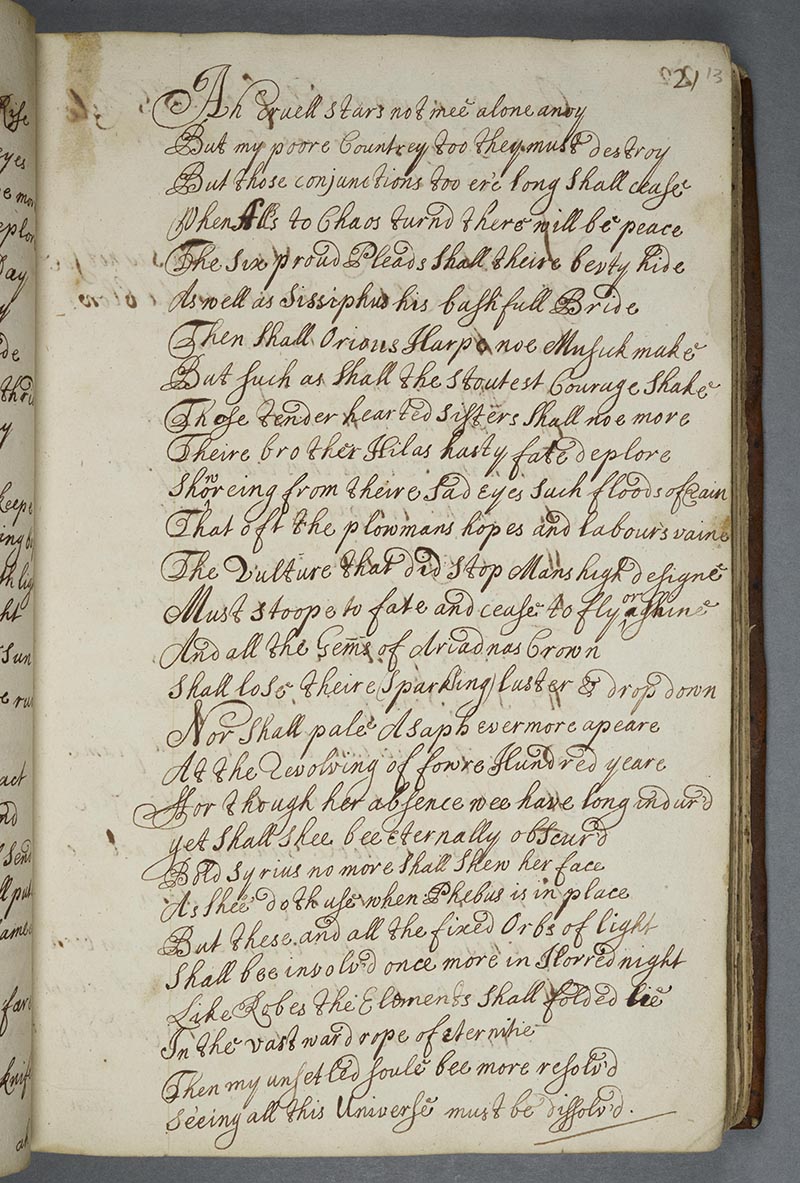 21 13
Ah Cruell stars not mee alone anoy
But my poore Countrey too they must destroy
But those conjunctions too ere long shall cease
When All's to Chaos turnd there will be peace
The six proud Pleads shall theire bevty hide
As well as Sissiphus his bashfull Bride
Then shall Orions Harpe noe Musick make
But such as shall the stoutest Courage shake
Those tender hearted sisters shall noe more
Theire brother Hilas hasty fate deplore
Showreing from theire sad Eyes such floods of Rain
That oft the plowmans hopes and labours vaine
The Vulture that did stop Mans high designe
Must stoope to fate and cease to fly or shine
And all the Gem̄s of Ariadnas Crown
Shall lose theire (sparkling) luster & drop down
Nor shall pale Asaph evermore apeare
At the Revolving of fowre Hundred yeare
For though her absence wee have long indur'd
yet shall shee bee eternally obscur'd
Bold Syrius no more shall shew her face
As shee doth use when Phebus is in place
But these and all the fixed Orbs of light
Shall bee involv'd once more in Horred night
Like Robes the Elements shall folded lie
In the vast wardrope of eternitie
Then my unsetled soule bee more resolv'd
Seeing all this Universe must be dissolv'd.